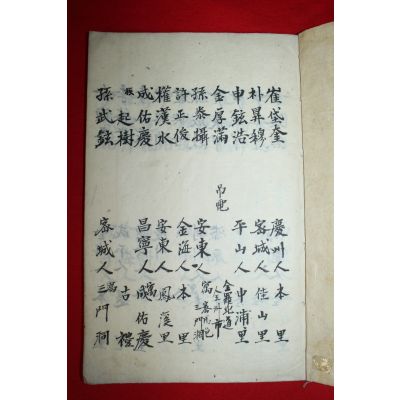 崔岱奎 慶州人 本里
朴昇穆 密城人 佳山里
申鉉浩 平山人 申浦里
金厚滿 吊 全羅北道 市
孫泰攝 安東人 寓 三門洞
許正俊 金海人 本里
權漢水 安東人 鳳溪里
成佑慶 昌寧人 寓 成佑慶
族 起樹 古禮
孫武鉉 密城人 寓 三門洞